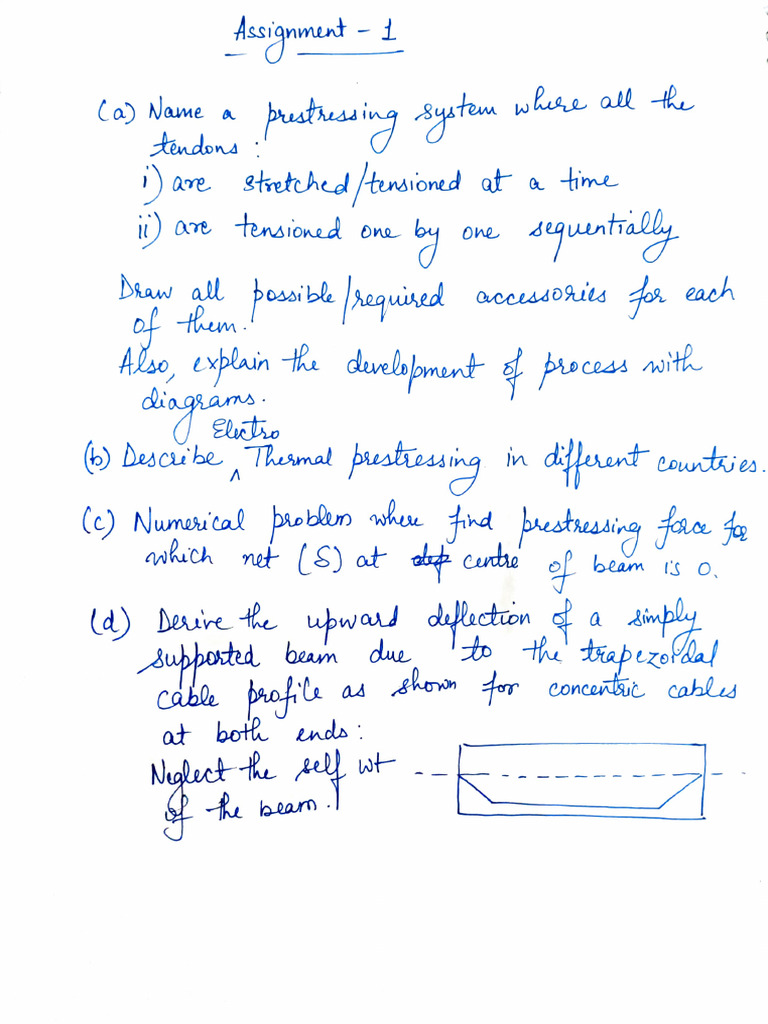 Assignment - 1
(a) Name a prestressing system where all the
tendons :
i) are stretched/tensioned at a time
ii) are tensioned one by one sequentially
Draw all possible/required accessories for each
of them.
Also, explain the development of process with
diagrams.
Electro
(b) Describe ^ Thermal prestressing in different countries.
(c) Numerical problem where find prestressing force for
which net (δ) at centre of beam is 0.
(d) Derive the upward deflection of a simply
supported beam due to the trapezoidal
cable profile as shown for concentric cables
at both ends:
Neglect the self wt
of the beam.